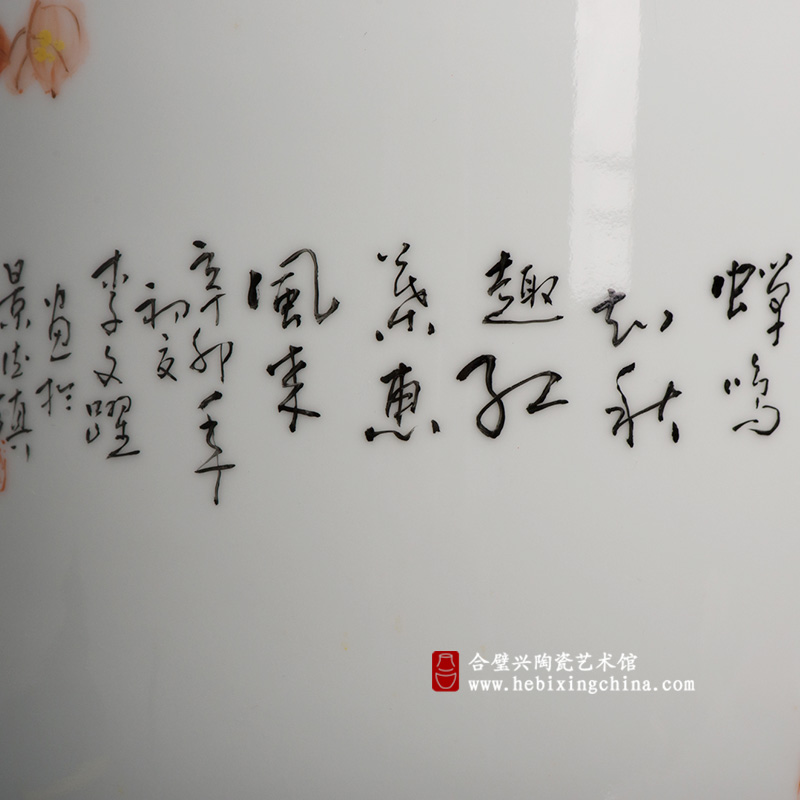 蟬鳴
知秋
趣红
葉惠
風来
辛卯年
初夏
李文躍
畫於
景德镇
合璧兴陶瓷艺术馆
www.hebixingchina.com